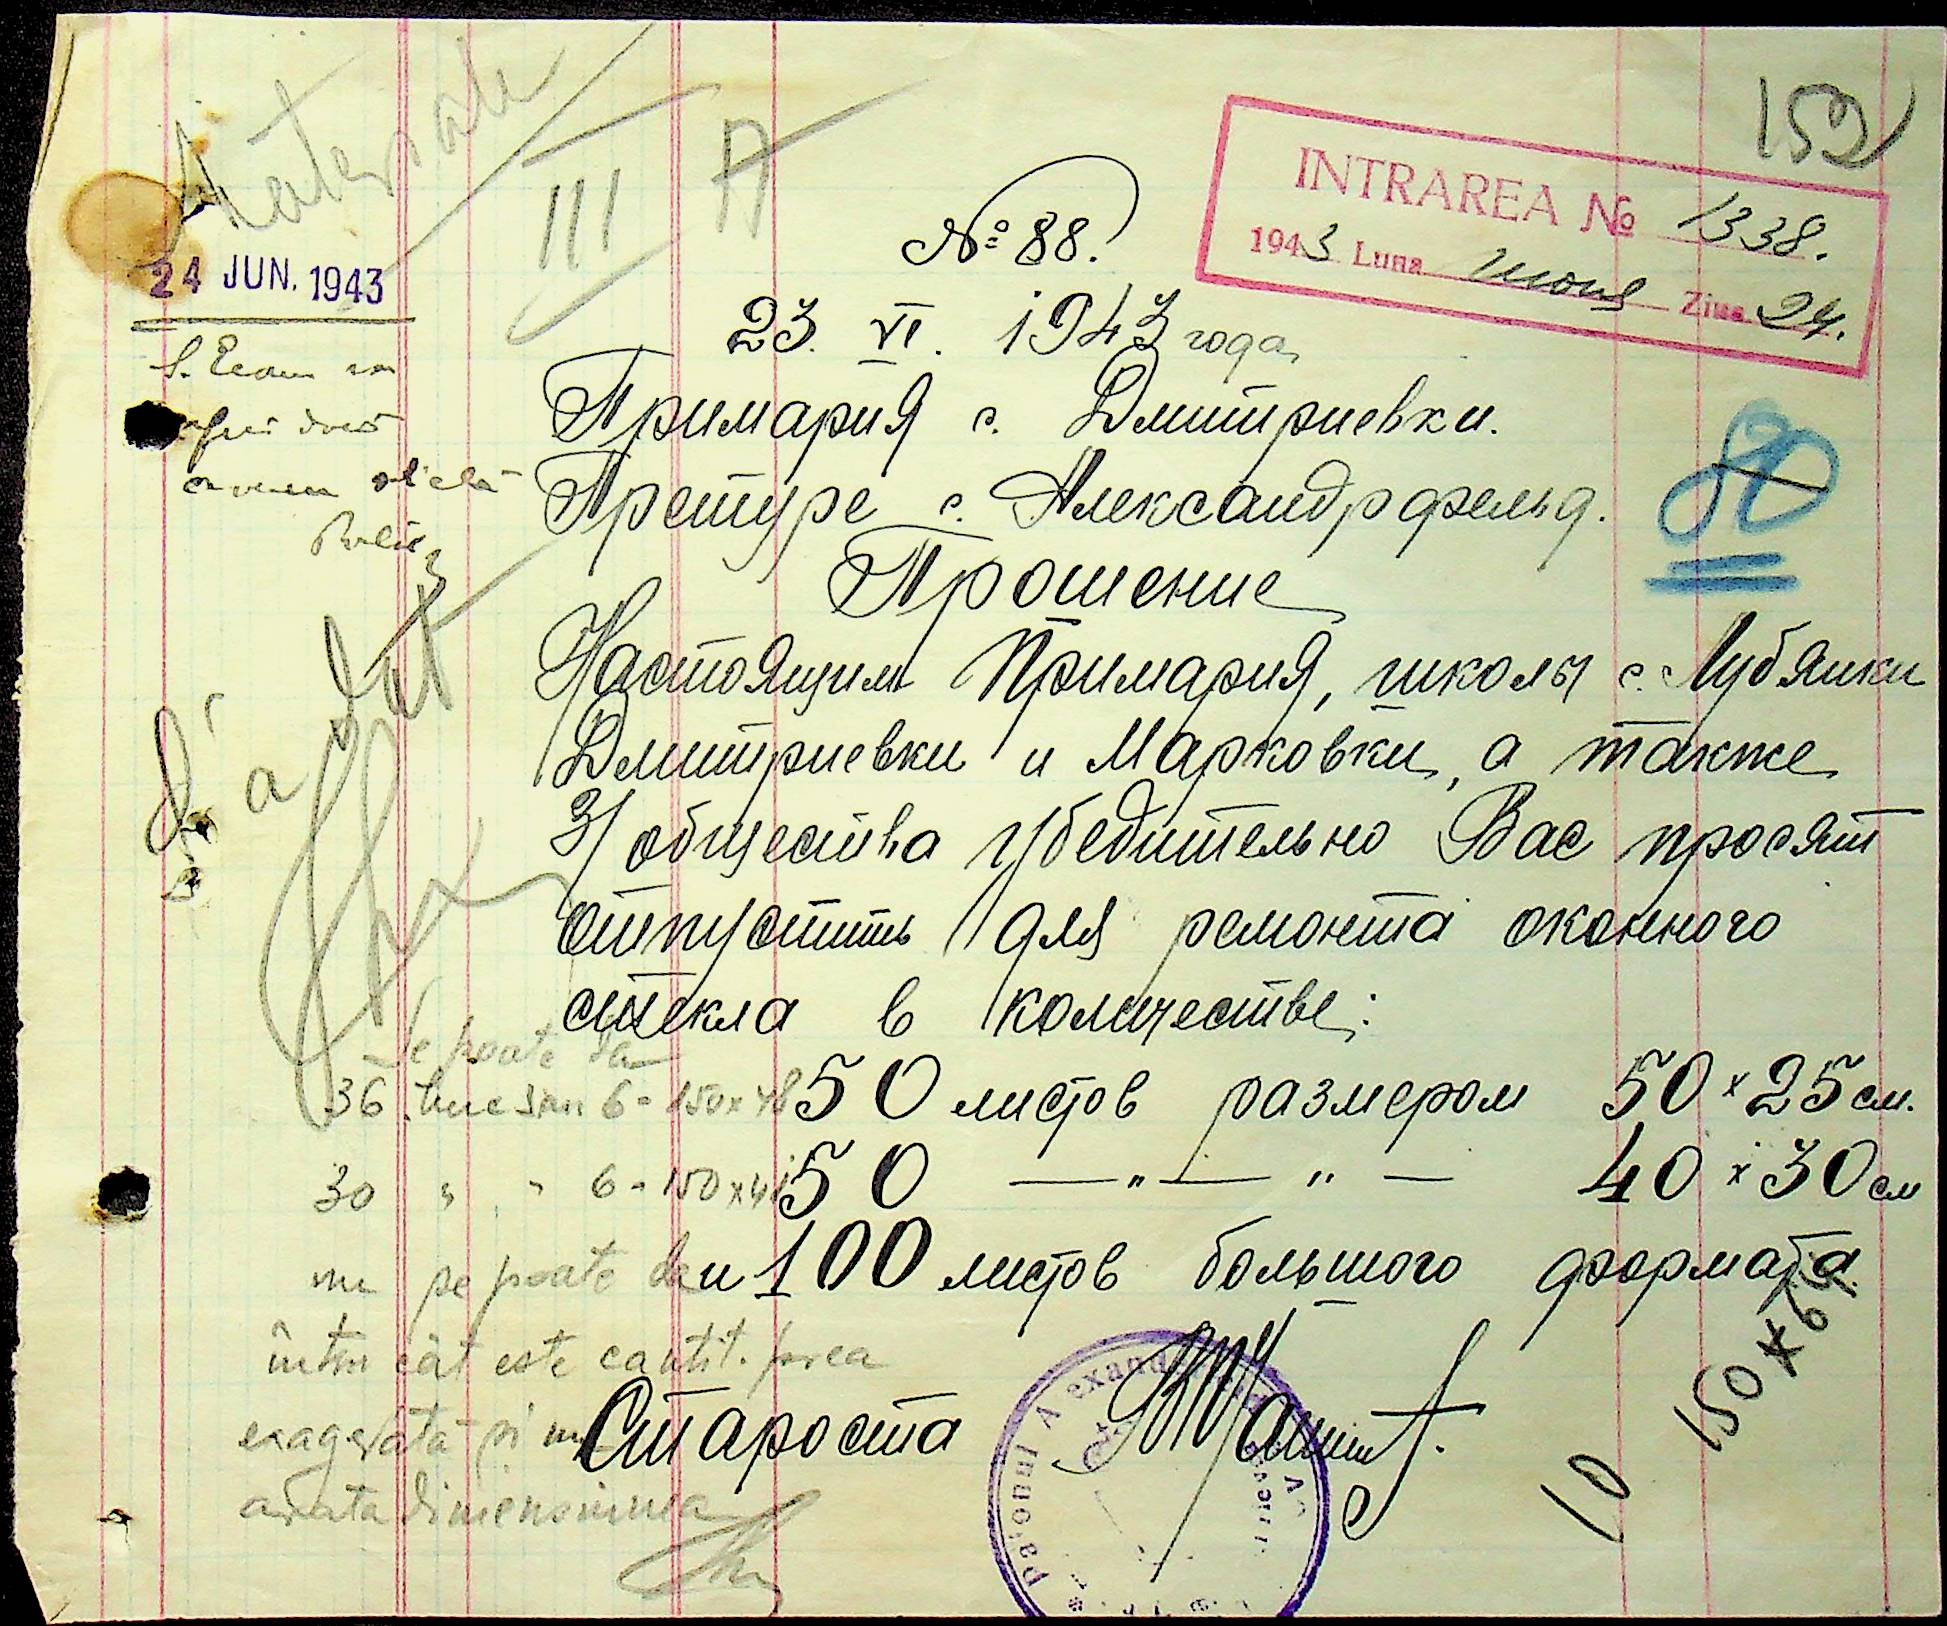 152
Materiale
III A
INTRAREA № 1338.
1943 Luna июня Ziua 24.
24 JUN. 1943
№ 88.
23. VI. 1943 года
Примария с. Дмитриевки.
Претуре с. Александрфельд.
80
Прошение
Настоящим Примария, школы с. Лубянки
Дмитриевки и Марковки, а также
З/общества убедительно Вас просят
отпустить для ремонта оконного
стекла в количестве:
50 листов размером 50 x 25 см.
50 — " — " — 40 x 30 см
и 100 листов большого формата.
Староста
S'a dat
Se poate da
36 buc 6 - 150 x 48
30 " " 6 - 150 x 48
nu se poate da
întru cât este cantit. prea
exagerată și nu
arata dimensiunea
150 x 6
10
Raionul